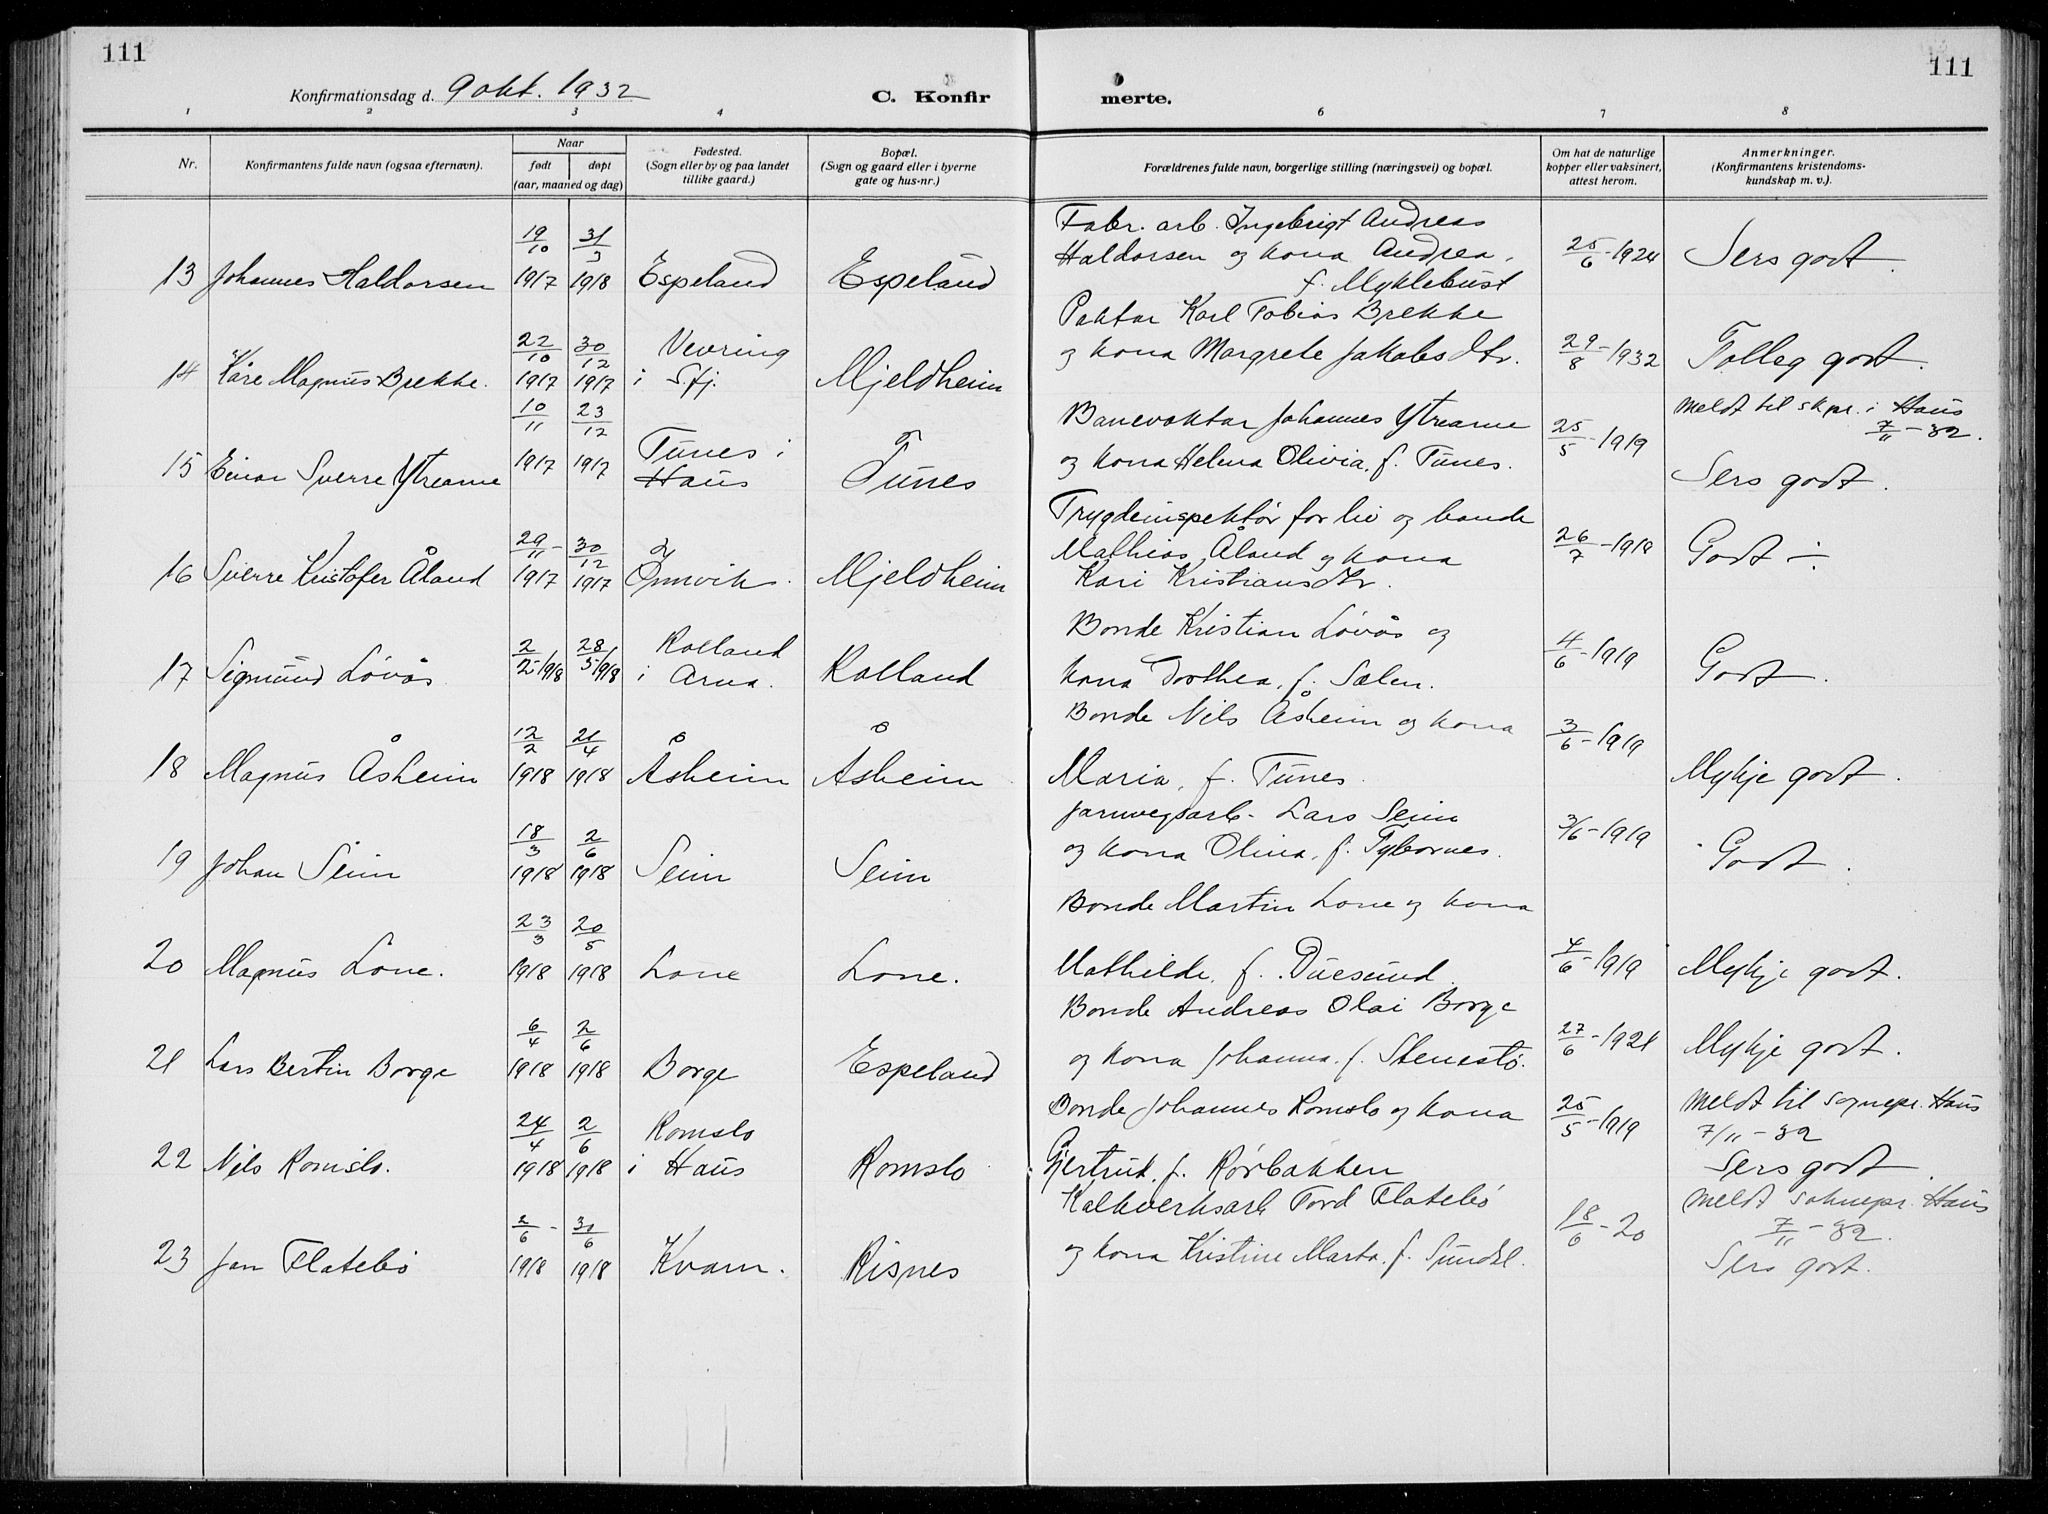 111
111
Konfirmationsdag d. 9 okt. 1932
C. Konfir
merte.
1 2 3 4 5 6 7 8
Nr.
Konfirmantens fulde navn (ogsaa efternavn).
Naar
født
døpt
(aar, maaned og dag)
Fødested.
(Sogn eller by og paa landet
tillike gaard.)
Bopæl.
(Sogn og gaard eller i byerne
gate og hus-nr.)
Forældrenes fulde navn, borgerlige stilling (næringsvei) og bopæl.
Om hat de naturlige
kopper eller vaksinert,
attest herom.
Anmerkninger.
(Konfirmantens kristendoms-
kundskap m. v.).
13 Johannes Haldorsen 19/10 1917 31/3 1918 Espeland Espeland
Fabr. arb. Ingebrigt Andreas
Haldorsen og kona Andrea,
f. Myklebust
25/6-1924 Sers godt.
14 Kåre Magnus Brekke. 22/10 1917 30/12 1917 Vevring
i S.fj. Mjeldheim
Paktar Karl Tobias Brekke
og kona Margrete Jakobsdtr.
29/8-1932 Tolleg godt.
15 Einar Sverre Ytrearne 10/11 1917 23/12 1917 Tunes i
Haus Tunes
Banevaktar Johannes Ytrearne
og kona Helena Olivia, f. Tunes.
25/5-1919 Meldt til skpr. i Haus
7/11-32.
Sers godt.
16 Sverre Kristofer Åland 29/11 1917 30/12 1917 Ytre
Mjeldheim
Trygdeinspektør for liv og
Mathias Åland og kona
Kari Kristiansdtr.
26/7-1918 Godt ÷
17 Sigmund Løvås 2/2 1918 28/5 1918 Rolland
i Arna. Rolland
Bonde Kristian Løvås og
kona Dorthea, f. Sælen.
4/6-1919 Godt.
18 Magnus Åsheim 12/2 1918 21/4 1918 Åsheim Åsheim
Bonde Nils Åsheim og kona
Maria, f. Tunes.
3/6-1919 Mykje godt.
19 Johan Seim 18/3 1918 2/6 1918 Seim Seim
Jarnvegsarb. Lars Seim
og kona Olina, f. Tybornes.
3/6-1919 Godt.
20 Magnus Lone. 23/3 1918 20/5 1918 Lone Lone.
Bonde Martin Lone og kona
Mathilde, f. Duesund
4/6-1919 Mykje godt.
21 Lars Bertin Borge 6/4 1918 2/6 1918 Borge Espeland
Bonde Andreas Olai Borge
og kona Johanna, f. Stenestø.
27/6-1921 Mykje godt.
22 Nils Romslo. 24/4 1918 2/6 1918 Romslo
i Haus Romslo
Bonde Johannes Romslo og kona
Gjertrud, f. Rørbakken
25/5-1919 Meldt til sognepr. Haus
7/11-32
Sers godt
23 Jan Flatebø 2/6 1918 30/6 1918 Kvam. Risnes
Kalkverksarb Tord Flatebø
og kona Kristine Marta, f. Sundsl.
18/6-20 Meldt soknepr. Haus
7/11-32.
Sers godt.